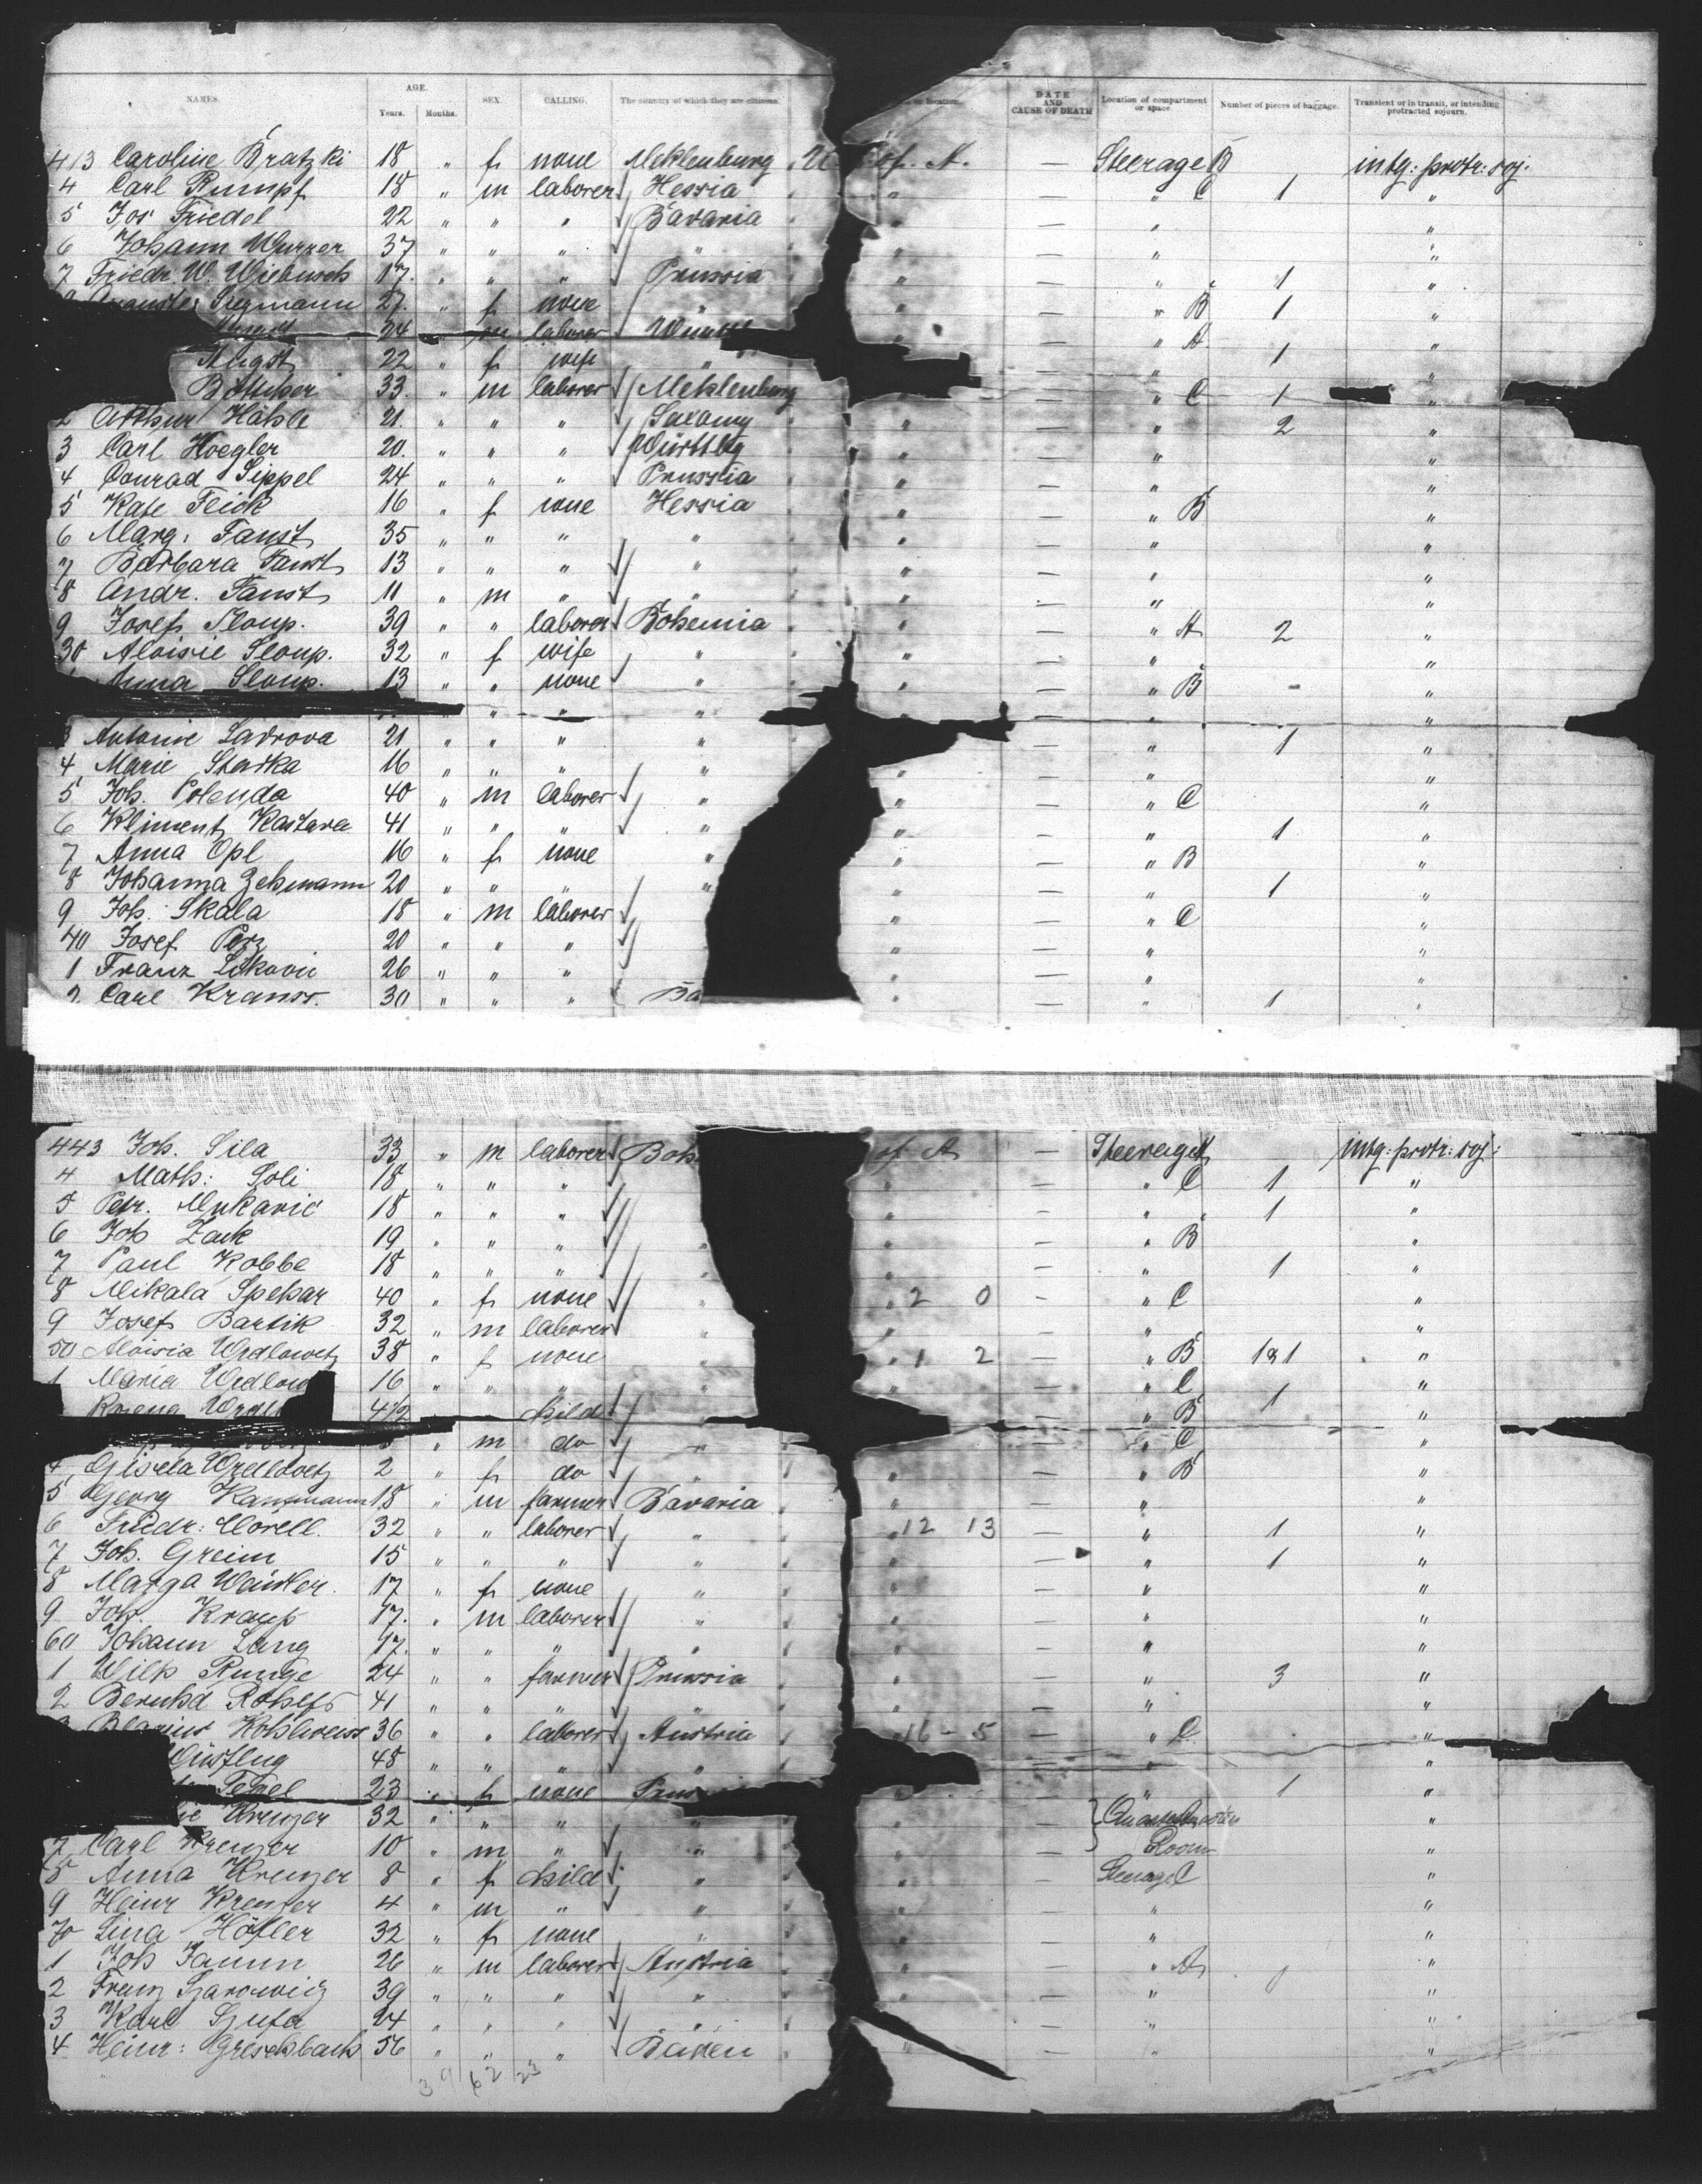 NAMES. AGE. SEX. CALLING. The country of which they are citizens. or location. DATE AND CAUSE OF DEATH Location of compartment or space. Number of pieces of baggage. Transient or in transit, or intending protracted sojourn.
Years. Months.
413 Caroline Bratzki 18 " f none Meklenburg U of. A. — Steerage B intg: protr: soj.
4 Carl Rumpf 18 " m laborer Hessia " — " C 1 "
5 Jos Friedel 22 " " " Bavaria " — " "
6 Johann Wurzer 37 " " " " " — " "
7 Friedr. W. Wiebusch 17. " " " Prussia " — " 1 "
Siegmann 27. " f none " " — " B 1 "
24 " m laborer Württ " — " A "
Angst 22 " f wife " " — " 1 "
Böttcher 33. " m laborer Meklenburg " — " C 1 "
2 Arthur Hähle 21. " " " Saxony " — " 2 "
3 Carl Hoegler 20. " " " Württbg " — " "
4 Conrad Sippel 24 " " " Prussia " — " "
5 Kate Feick 16 " f none Hessia " — " B "
6 Marg. Faust 35 " " " " " — " "
7 Barbara Faust 13 " " " " " — " "
8 Andr. Faust 11 " m " " " — " "
9 Josef Sloup. 39 " " laborer Bohemia " — " A 2 "
30 Aloisie Sloup. 32 " f wife " " — " "
Anna Sloup. 13 " " none " " — " B - "
" " " " — " "
3 Antonie Ladrova 21 " " " " — " 1 "
4 Marie Starka 16 " " " " " — " "
5 Joh. Polenda 40 " m laborer " " — " C "
6 Kliment Kastava 41 " " " " " — " 1 "
7 Anna Opl 16 " f none " " — " B "
8 Johanna Zehmann 20 " " " " " — " 1 "
9 Joh. Skala 18 " m laborer " — " C "
40 Josef Perz 20 " " " " — " "
1 Franz Likovic 26 " " " " — " "
2 Carl Kranss. 30 " " " Ba " — " 1 "
443 Joh. Sila 33 " m laborer Boh of A — Steerage A intg: protr: soj:
4 Math: Soli 18 " " " " — " C 1 "
5 Petr. Mukavic 18 " " " " — " 1 "
6 Joh Zack 19 " " " " " — " B "
7 Paul Kobbe 18 " " " " " — " 1 "
8 Mikala Spehar 40 " f none " " 2 0 — " C "
9 Josef Bartik 32 " m laborer " " — " "
50 Aloisia Wrdlowetz 38 " f none " " 1 2 — " B 181 "
1 Maria Wrdlow 16 " " " " " — " C "
Rosena Wrdl 4 1/2 child " — " B 1 "
" m do " " — " C "
4 Gisela Wrdlowetz 2 " f do " " — " B "
5 Georg Kaufmann 18 " m farmer Bavaria " — " "
6 Friedr: Mörell. 32 " " laborer " " 12 13 — " 1 "
7 Joh. Greim 15 " " " " " — " 1 "
8 Marga Weissler 17 " f none " " — " "
9 Joh. Krauss 17. " m laborer " " — " "
60 Johann Lang 17. " " " " " — " "
1 Wilh Runge 24 " " farmer Prussia " — " 3 "
2 Bernhd Rohlfs 41 " " " " " — " "
Blasius Kohlweiss 36 " " laborer Austria " 16 - 5 — " C "
48 " " " " — " "
23 " f none Prus " — " 1 "
Kreuzer 32 " " " " " — "
7 Carl Kreuzer 10 " m " " " — Room "
8 Anna Kreuzer 8 " f child " " — Steerage C "
9 Heinr Kreuzer 4 " m " " " — " "
70 Lina Höfler 32 " f none " " — " "
1 Joh Jamm 26 " m laborer Austria " — " A "
2 Franz Sarowicz 39 " " " " " — " "
3 Karl Szufa 24 " " " " " — " "
4 Heinr: Greschbach 56 " " " Baden " — " "
39 62 23